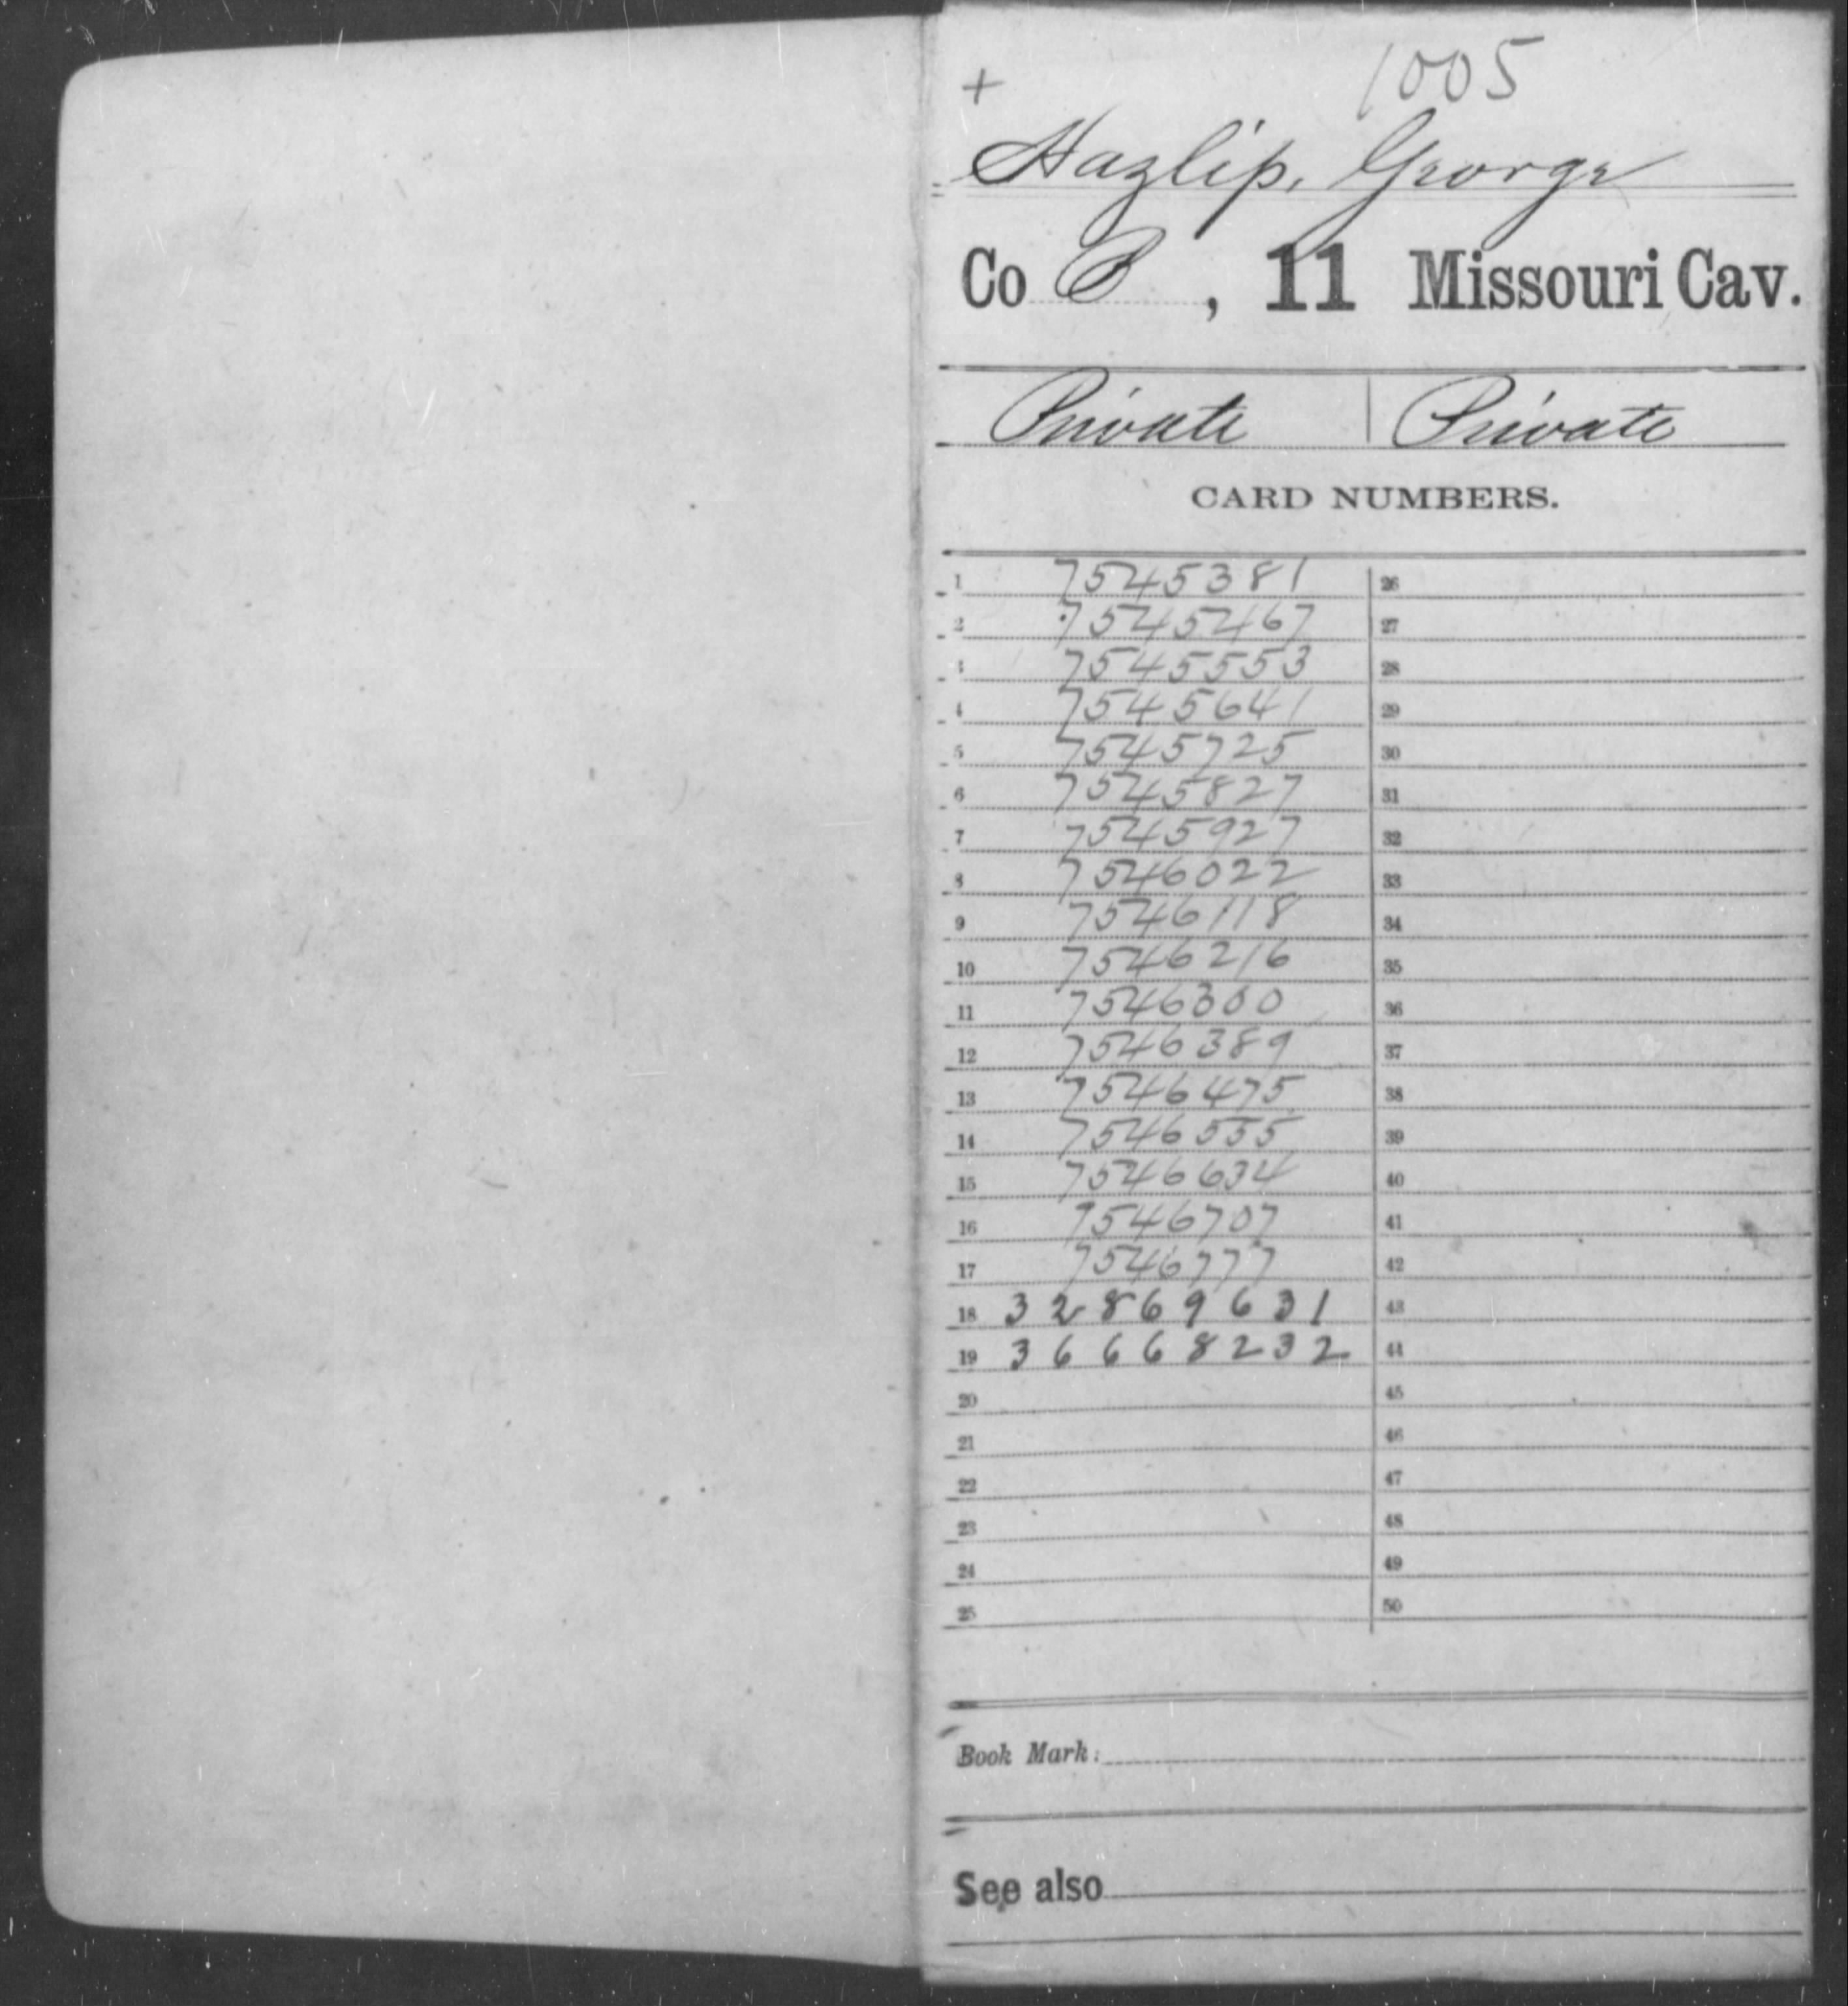 + 1005
Hazlip, George
Co B, 11 Missouri Cav.
Private | Private
CARD NUMBERS.
1 7545381 26
2 7545467 27
3 7545553 28
4 7545641 29
5 7545725 30
6 7545827 31
7 7545927 32
8 7546022 33
9 7546118 34
10 7546216 35
11 7546300 36
12 7546389 37
13 7546475 38
14 7546555 39
15 7546634 40
16 7546707 41
17 7546777 42
18 32869631 43
19 36668232 44
20 45
21 46
22 47
23 48
24 49
25 50
Book Mark:
See also